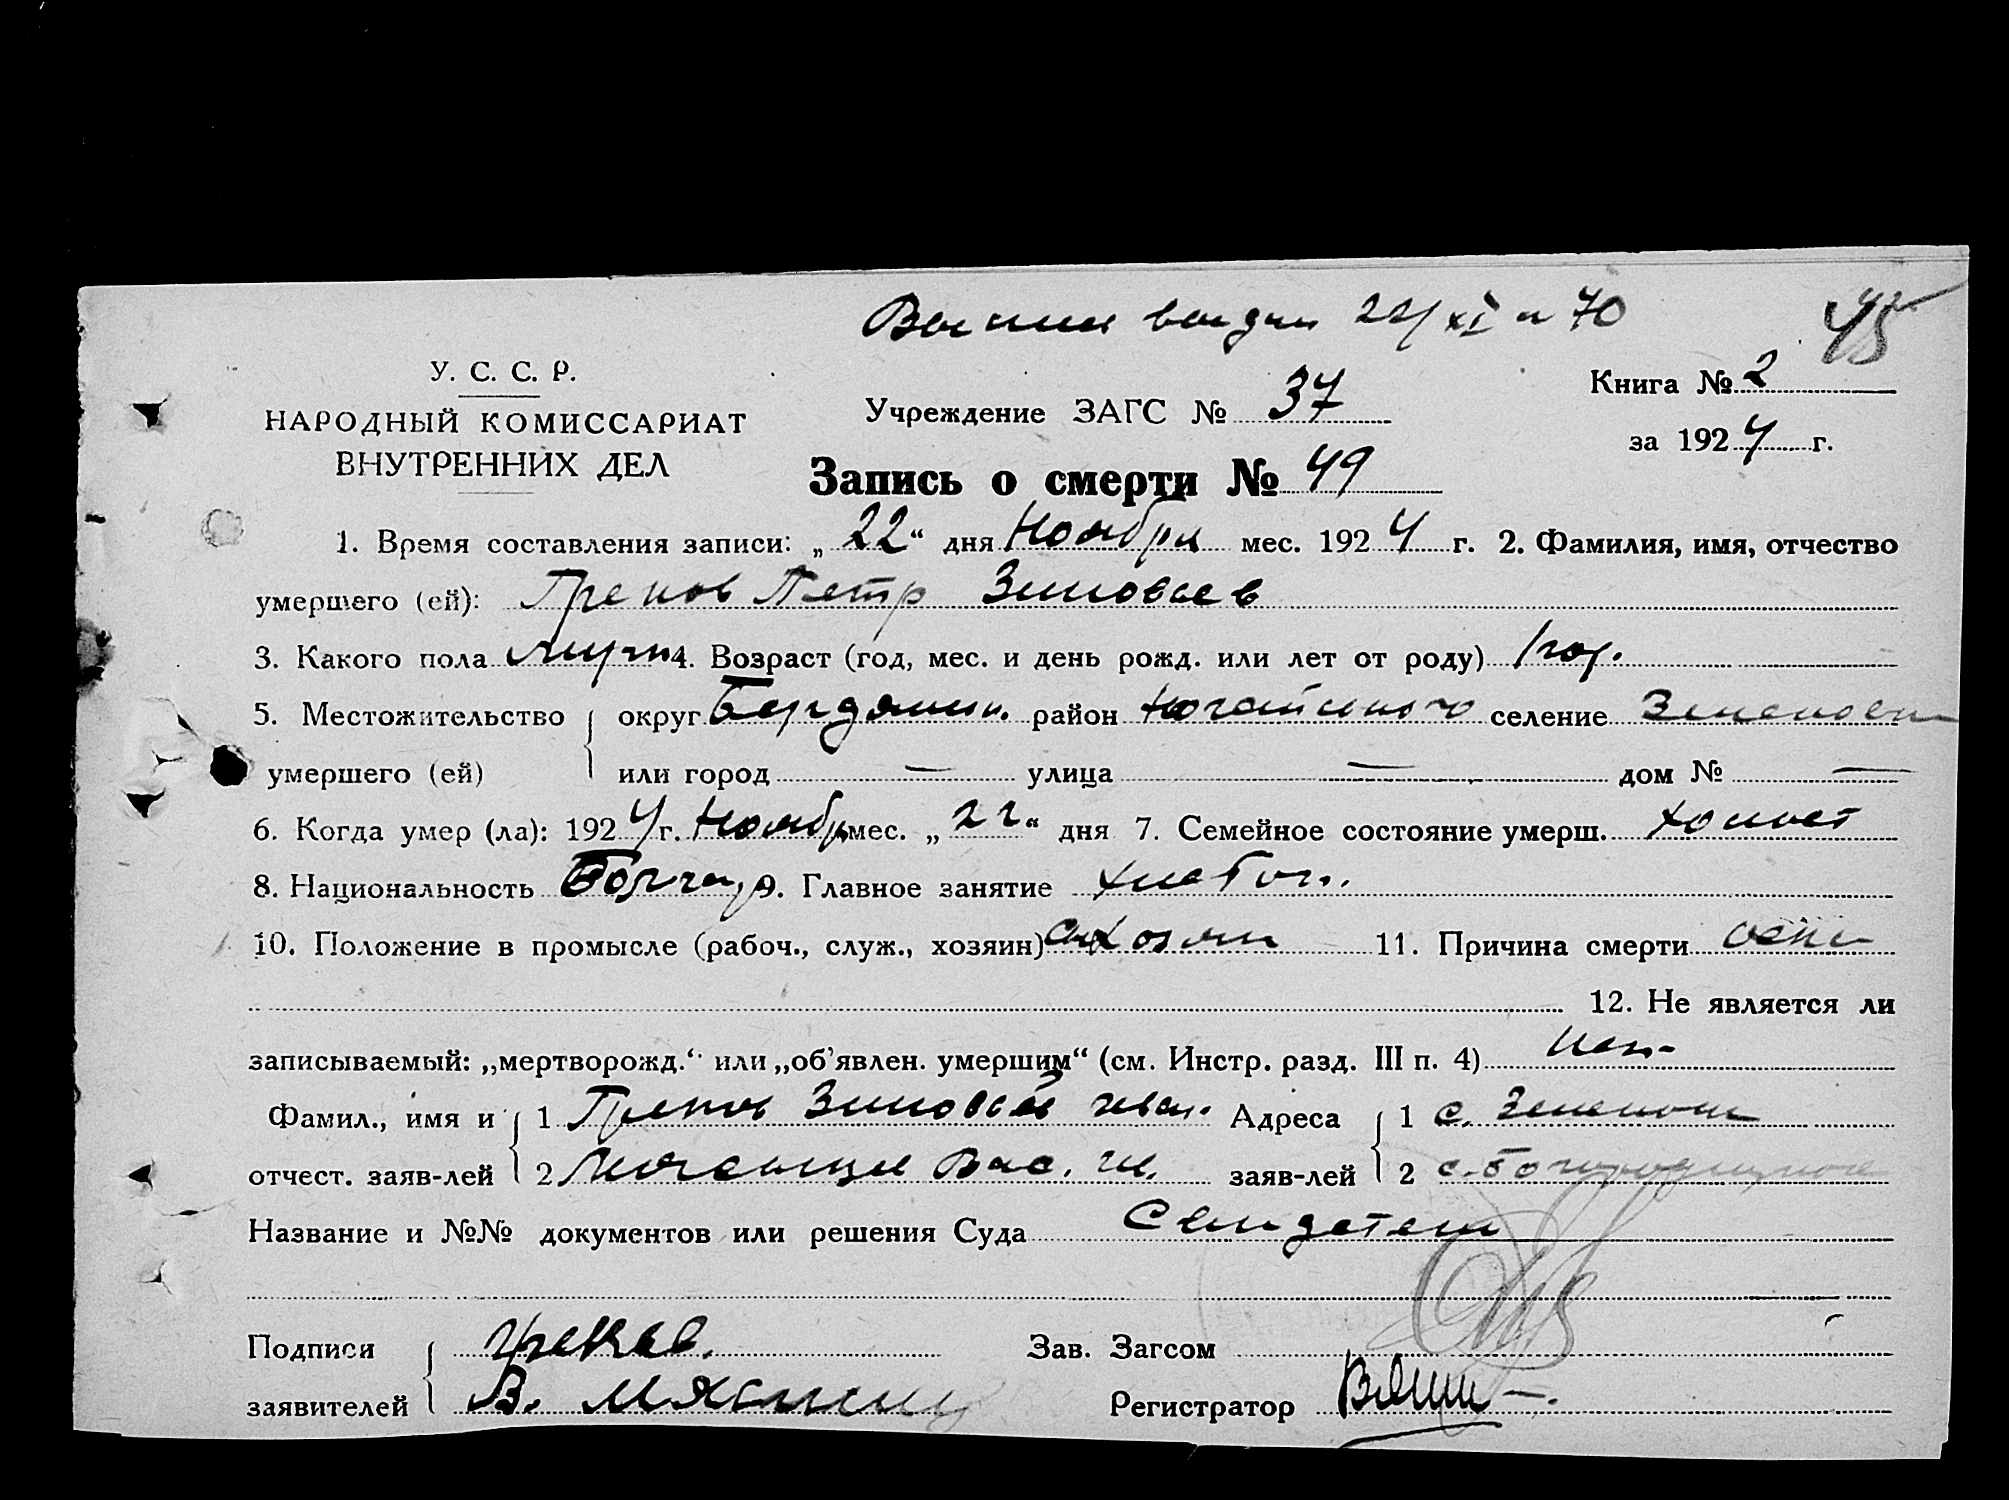 Выпись выдан 22/XI за № 70 45
У. С. С. Р.
НАРОДНЫЙ КОМИССАРИАТ
ВНУТРЕННИХ ДЕЛ
Учреждение ЗАГС № 37
Книга № 2
за 1924 г.
Запись о смерти № 49
1. Время составления записи: „22“ дня Ноября мес. 1924 г. 2. Фамилия, имя, отчество
умершего (ей): Греков Петр Зиновьев
3. Какого пола мужс 4. Возраст (год, мес. и день рожд. или лет от роду) 1 год.
5. Местожительство округ Бердянск. район Ногайского селение Зеленовки
умершего (ей) или город — улица — дом № —
6. Когда умер (ла): 1924 г. Ноябр мес. „22“ дня 7. Семейное состояние умерш. холост
8. Национальность Болгар 9. Главное занятие хлебоп.
10. Положение в промысле (рабоч., служ., хозяин) хозяин 11. Причина смерти оспы
12. Не является ли
записываемый: „мертворожд.“ или „об’явлен. умершим“ (см. Инстр. разд. III п. 4) Нет
Фамил., имя и 1 Греков Зиновьев Адреса 1 с. Зеленовки
отчест. заяв-лей 2 Вас. заяв-лей 2 с.
Название и №№ документов или решения Суда Свидетели
Подписи Греков.
Зав. Загсом
заявителей В.
Регистратор